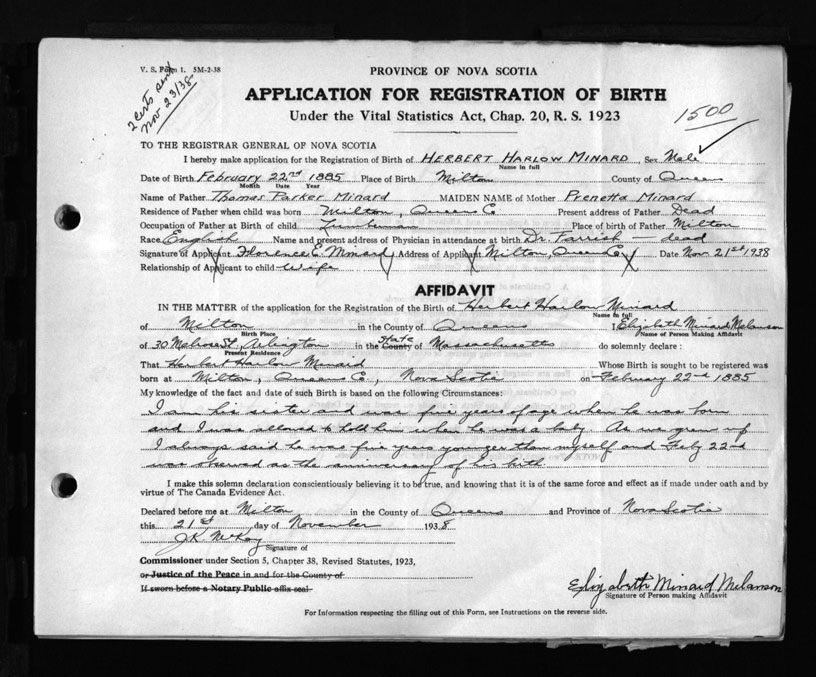 V. S. Form 1. 5M-2-38
2 certs send
Nov 23/38
PROVINCE OF NOVA SCOTIA
APPLICATION FOR REGISTRATION OF BIRTH
Under the Vital Statistics Act, Chap. 20, R. S. 1923
1500
TO THE REGISTRAR GENERAL OF NOVA SCOTIA
I hereby make application for the Registration of Birth of HERBERT HARLOW MINARD Sex Male
Name in full
Date of Birth February 22nd 1885 Place of Birth Milton County of Queens
Month Date Year
Name of Father Thomas Parker Minard MAIDEN NAME of Mother Prenetta Minard
Residence of Father when child was born Milton, Queens Co Present address of Father Dead
Occupation of Father at Birth of child Lumberman Place of birth of Father Milton
Race English Name and present address of Physician in attendance at birth Dr. Farrish — dead
Signature of Applicant Florence E. Minard Address of Applicant Milton, Queens Co. Date Nov. 21st 1938
Relationship of Applicant to child Wife
AFFIDAVIT
IN THE MATTER of the application for the Registration of the Birth of Herbert Harlow Minard
Name in full
of Milton in the County of Queens I Elizabeth Minard Melanson
Birth Place Name of Person Making Affidavit
of 30 Melrose St. Arlington in the County of State Massachusetts do solemnly declare :
Present Residence
That Herbert Harlow Minard Whose Birth is sought to be registered was
born at Milton, Queens Co, Nova Scotia on February 22nd 1885
My knowledge of the fact and date of such Birth is based on the following Circumstances:
I am his sister and was five years of age when he was born
and I was allowed to hold him when he was a baby. As we grew up
I always said he was five years younger than myself and Feby 22nd
was observed as the anniversary of his birth
I make this solemn declaration conscientiously believing it to be true, and knowing that it is of the same force and effect as if made under oath and by
virtue of The Canada Evidence Act.
Declared before me at Milton in the County of Queens and Province of Nova Scotia
this 21st day of November 1938
J.K. McKay
Signature of
Commissioner under Section 5, Chapter 38, Revised Statutes, 1923,
or Justice of the Peace in and for the County of
If sworn before a Notary Public affix seal
Elizabeth Minard Melanson
Signature of Person making Affidavit
For Information respecting the filling out of this Form, see Instructions on the reverse side.